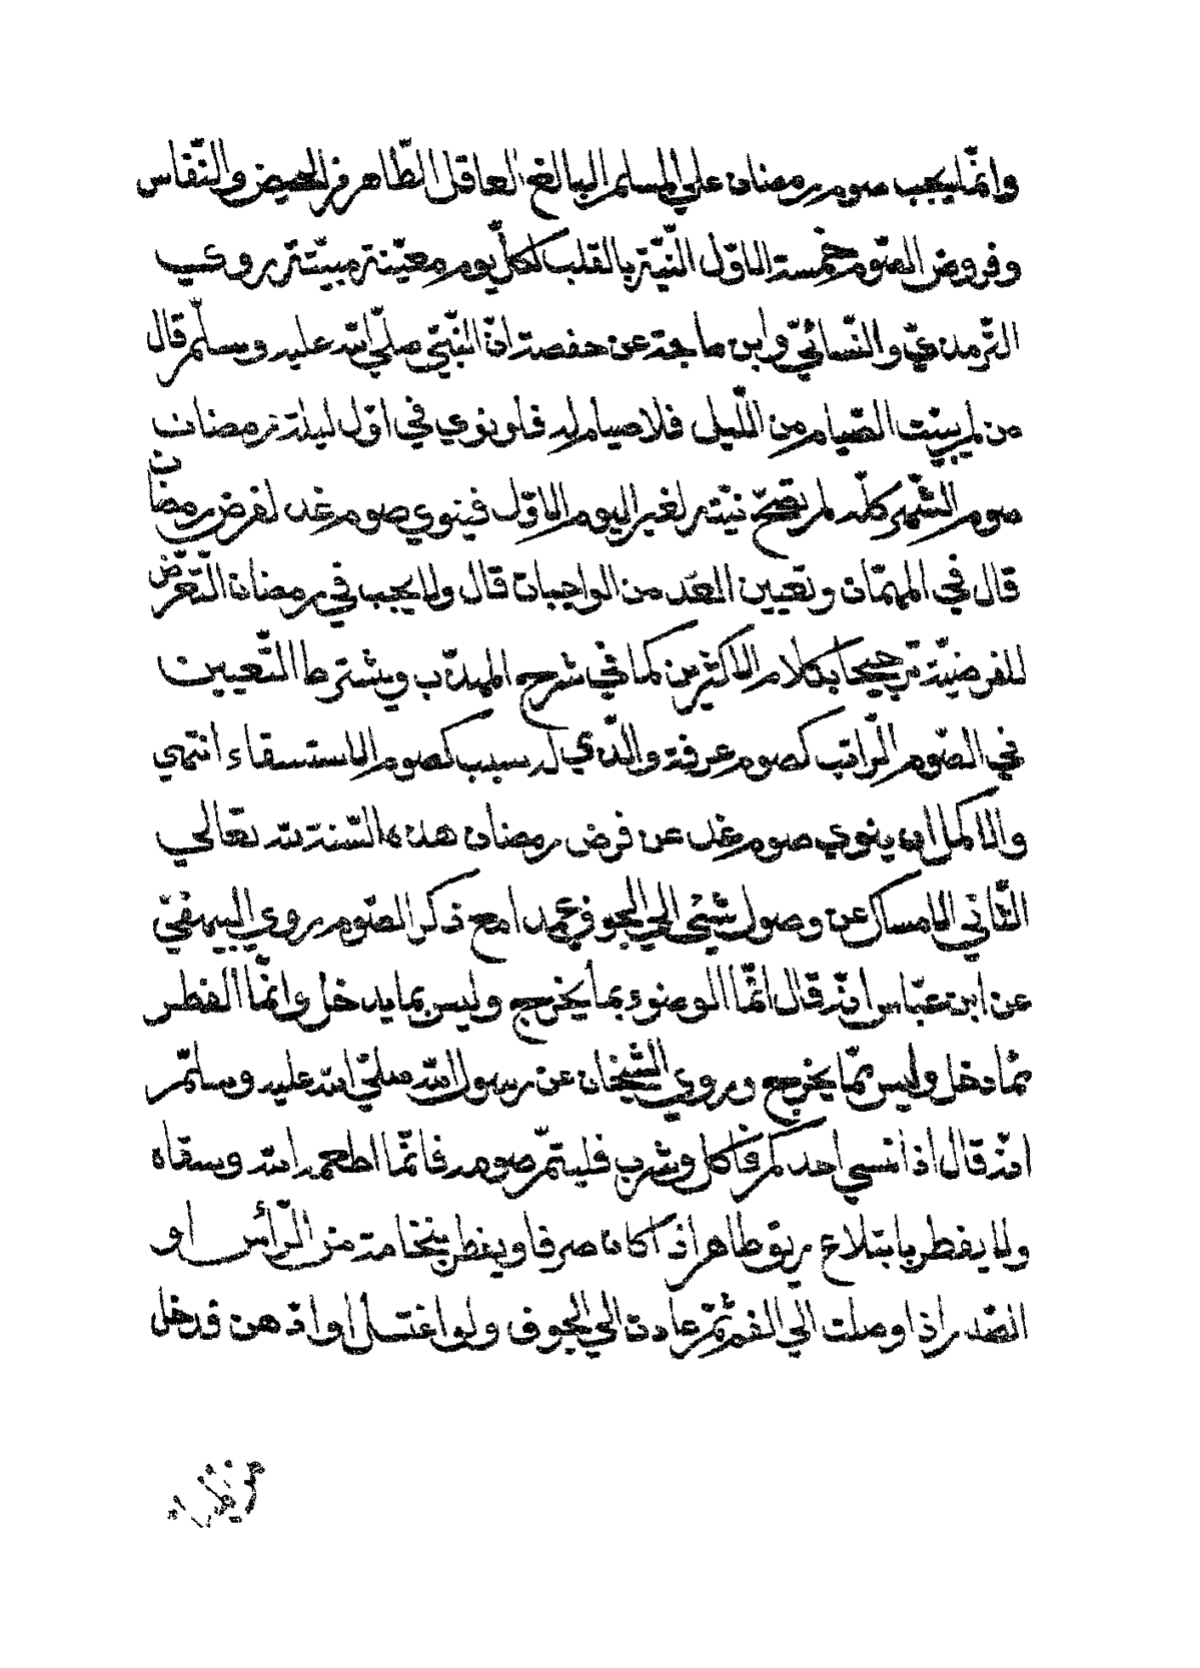 وانّما يجب صوم رمضان علي المسلم البالغ العاقل الطّاهر من الحيض والنّفاس
وفروض الصّوم خمسة الاوّل النّيّة بالقلب لكلّ يوم معيّنة مبيّتة روي
التّرمذيّ والنّسائيّ وابن ماجة عن حفصة انّ النّبيّ صلّي الله عليه وسلّم قال
من لم يبيّت الصّيام من اللّيل فلا صيام له فلو نوي في اوّل ليلة رمضان
صوم الشّهر كلّه لم تصحّ نيّته لغير اليوم الاوّل فينوي صوم غد لفرض رمضان
قال في المهمّات وتعيين الغد من الواجبات قال ولا يجب في رمضان التّعرّض
للفرضيّة ترجيحا بكلام الاكثرين كما في شرح المهذّب ويشترط التّعيين
في الصّوم الرّاتب كصوم عرفة والّذي له سبب كصوم الاستسقاء انتهي
والاكمل ان ينوي صوم غد عن فرض رمضان هذه السّنة لله تعالي
الثّاني الامساك عن وصول شيئ الي الجوف عمدا مع ذكر الصّوم روي البيهقيّ
عن ابن عبّاس انّه قال انّما الوضوء بما يخرج وليس بما يدخل وانّما الفطر
ممّا دخل وليس ممّا يخرج وروي الشّيخان عن رسول الله صلّي الله عليه وسلّم
انّه قال اذا نسي احدكم فاكل وشرب فليتمّ صومه فانّما اطعمه الله وسقاه
ولا يفطر بابتلاع ريق طاهر اذا كان صرفا ويفطر بنخامة من الرّأس او
الصّدر اذا وصلت الي الفم ثمّ عادت الي الجوف ولو اغتسل او ادّهن فدخل